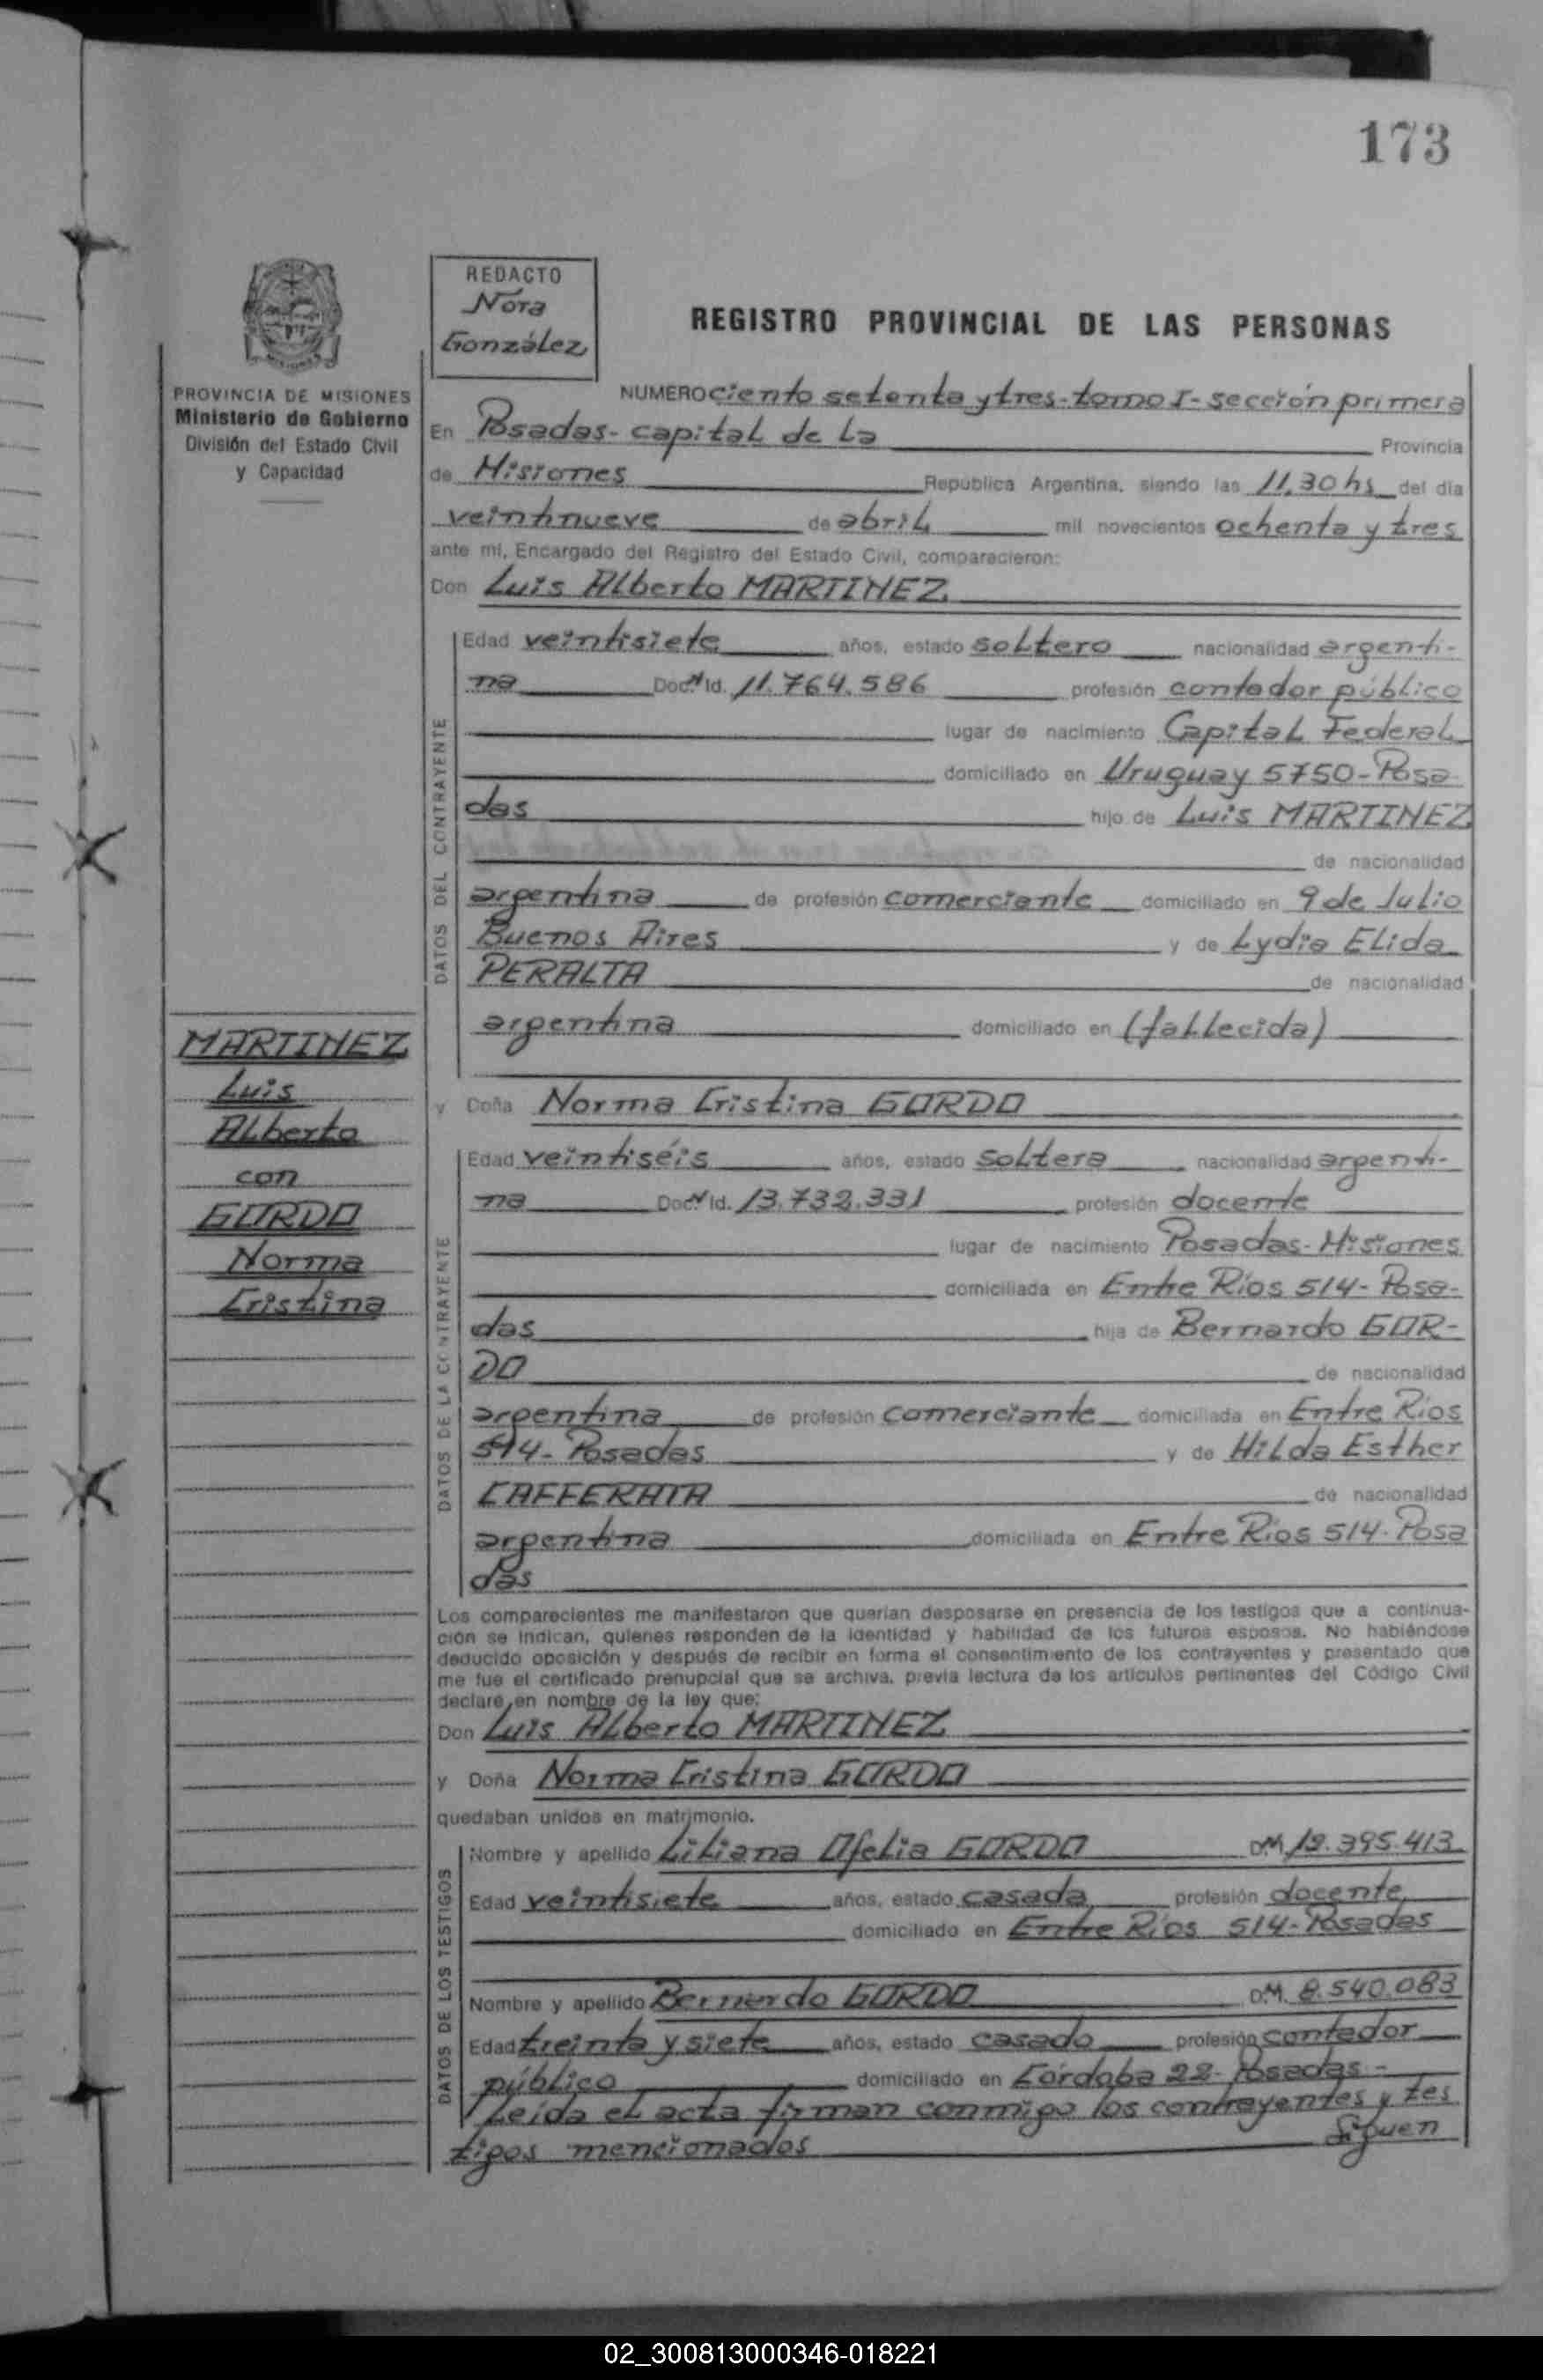 173
REDACTO
Nora
González
REGISTRO PROVINCIAL DE LAS PERSONAS
PROVINCIA DE MISIONES
Ministerio de Gobierno
División del Estado Civil
y Capacidad
NUMERO ciento setenta y tres - tomo I - sección primera
En Posadas - capital de la Provincia
de Misiones República Argentina, siendo las 11,30 hs del dia
veintinueve de abril mil novecientos ochenta y tres
ante mí, Encargado del Registro del Estado Civil, comparecieron:
Don Luis Alberto MARTINEZ
DATOS DEL CONTRAYENTE
Edad veintisiete años, estado soltero nacionalidad argenti-
na Doc. N Id. 11.764.586 profesión contador público
lugar de nacimiento Capital Federal
domiciliado en Uruguay 5750 - Posa
das hijo de Luis MARTINEZ
de nacionalidad
argentina de profesión comerciante domiciliado en 9 de Julio
Buenos Aires y de Lydia Elida
PERALTA de nacionalidad
argentina domiciliado en (fallecida)
MARTINEZ
Luis
Alberto
con
GORDO
Norma
Cristina
y Doña Norma Cristina GORDO
DATOS DE LA CONTRAYENTE
Edad veintiséis años, estado soltera nacionalidad argenti-
na Doc. N Id. 13.732.331 profesión docente
lugar de nacimiento Posadas - Misiones
domiciliada en Entre Ríos 514 - Posa-
das hija de Bernardo GOR-
DO de nacionalidad
argentina de profesión comerciante domiciliada en Entre Ríos
514 - Posadas y de Hilda Esther
CAFFERATA de nacionalidad
argentina domiciliada en Entre Ríos 514 - Posa
das
Los comparecientes me manifestaron que querían desposarse en presencia de los testigos que a continua-
ción se indican, quienes responden de la identidad y habilidad de los futuros esposos. No habiéndose
deducido oposición y después de recibir en forma el consentimiento de los contrayentes y presentado que
me fue el certificado prenupcial que se archiva, previa lectura de los artículos pertinentes del Código Civil
declaré, en nombre de la ley que:
Don Luis Alberto MARTINEZ
y Doña Norma Cristina GORDO
quedaban unidos en matrimonio.
DATOS DE LOS TESTIGOS
Nombre y apellido Liliana Ofelia GORDO D.M. 12.395.413
Edad veintisiete años, estado casada profesión docente
domiciliado en Entre Ríos 514 - Posadas
Nombre y apellido Bernardo GORDO D.M. 8.540.083
Edad treinta y siete años, estado casado profesión contador
público domiciliado en Córdoba 22 - Posadas -
Leída el acta firman conmigo los contrayentes y tes
tigos mencionados Siguen
02_300813000346-018221